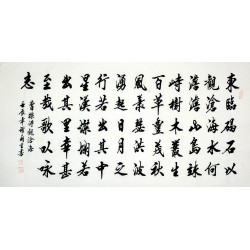 東臨碣石以
觀滄海水何
澹澹山島竦
峙樹木叢生
百草豐茂秋
風蕭瑟洪波
湧起日月之
行若出其中
星漢燦爛若
出其里幸甚
至哉歌以詠
志
曹操詩觀滄海
壬辰年